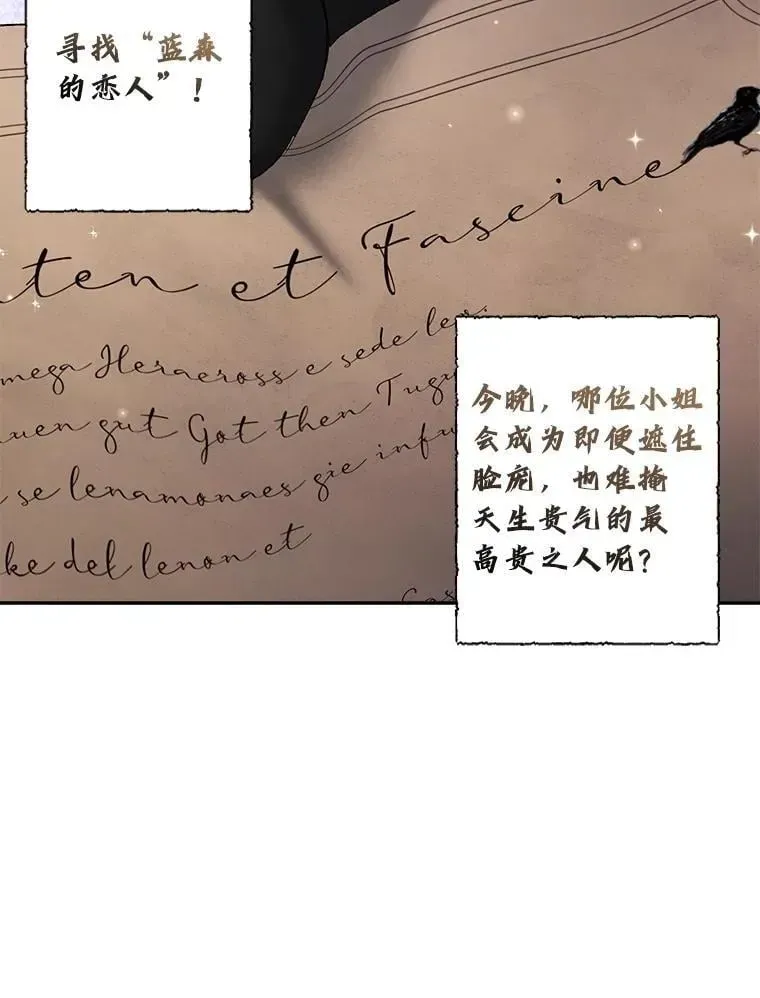 寻找“蓝森
的恋人”！
ten et Fascine
mega Heracross e sede ler
uen gut Got then Tugu
se lenamonaes gie infu
ke del lenon et
今晚，哪位小姐
会成为即便遮住
脸庞，也难掩
天生贵气的最
高贵之人呢？